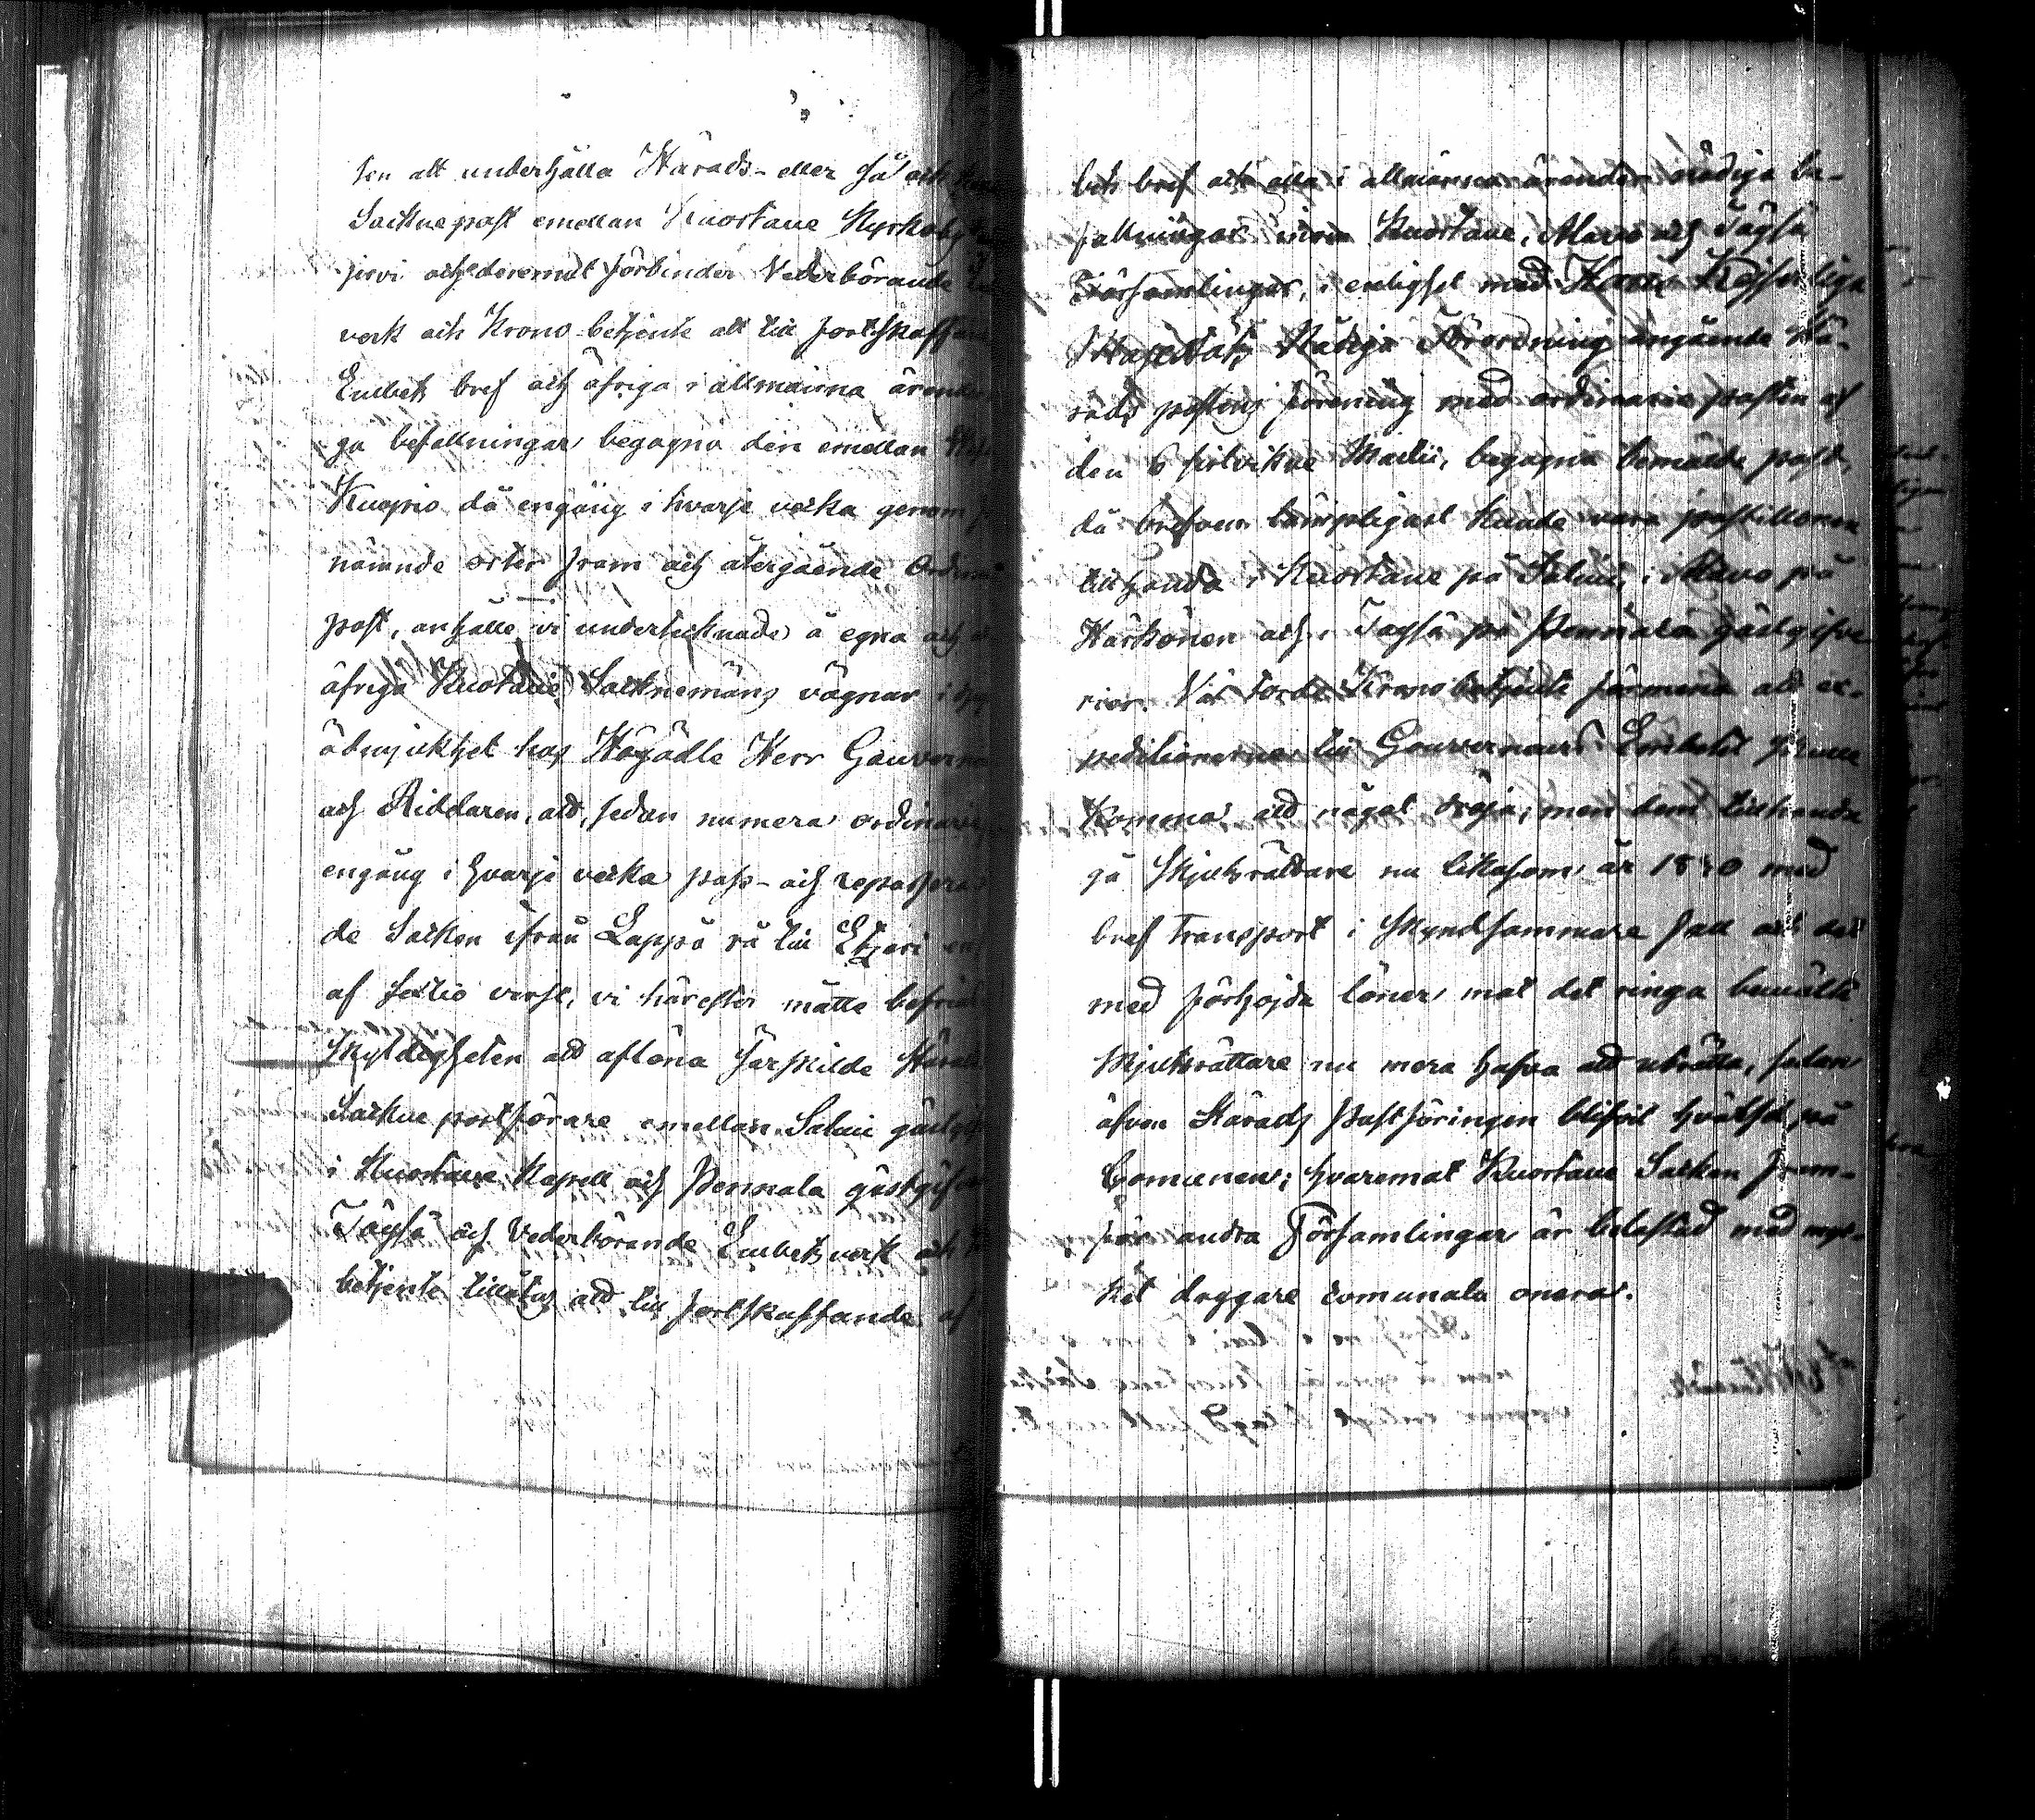 ten att underhålla Härads- eller så och
Sockne post emellan Kuortane Kyrkoby
jervi och deremot förbinder Vederbörande
verk och Krono-betjente att till fortskaffan
Embets bref och öfriga i allmänna ärend
ga befallningar begagna den emellan
Kuopio då engång i hvarje vecka genom
nämnde orter fram och återgående Ordin
post, anhålle vi undertecknade å egna och
öfriga Kuortane Socknemäns vägnar i
ödmjukhet hos Högädle Herr Gouverne
och Riddaren, att, sedan numera ordinarie
engång i hvarje vecka pass- och repassera
de Socken ifrån Lappo rå till Etseri en
af sextio verst, vi härefter måtte befrias
skyldigheten att aflöna särskilde Härads
Sockne postförare emellan Salmi gästgif
i Kuortane Kapell och Pennala gästgifve
Töysä och Vederbörande Embets verk och
betjente tillåtas att till fortskaffande af
bets bref och alla i allmänna ärenden nådiga be-
fallningar inom Kuortane, Alavo och Töysä
Församlingar, i enlighet med Hans Kejserliga
Majestäts Nådiga Förordning angående Hä-
rads postens förening med ordinarie posten af
den 6 sistvikne Martii, begagna bemälde post,
då brefven lämpligast kunde vara postillonen
tillhanda i Kuortane på Salmi, i Alavo på
Härkönen och i Töysä på Pennala gästgifve-
rier. Väl torde Kronobetjente förmena att ex-
peditionerne till Gouverneurs Embetet skulle
komma att något dröja; men dem tillhanda
gå skjutsrättare nu likasom år 1840 med
bref transport i skyndsammare fall och det
med förhöjda löner mot det ringa bemälte
skjutsrättare nu mera hafva att uträtta, sedan
äfven Härads Postföringen blifvit hvälfd på
Comunen; hvaremot Kuortane Socken fram-
för andra Församlingar är belastad med myc-
ket dryggare comunala onera.